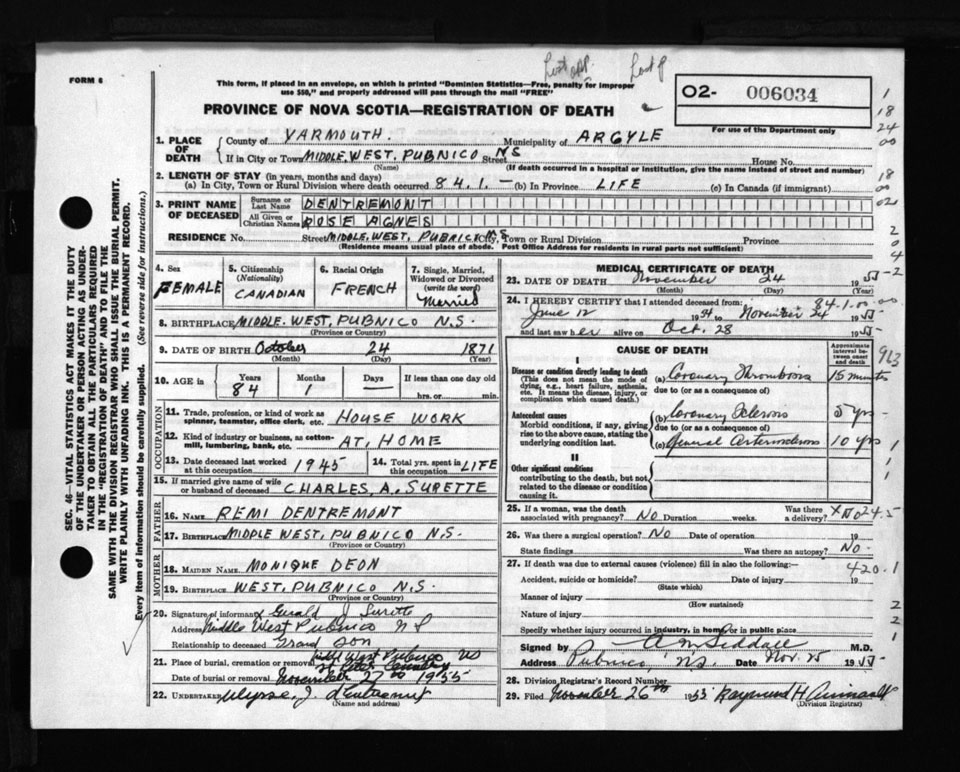 FORM 6
This form, if placed in an envelope, on which is printed "Dominion Statistics—Free, penalty for improper
use $50," and properly addressed will pass through the mail "FREE"
PROVINCE OF NOVA SCOTIA—REGISTRATION OF DEATH
O2- 006034
For use of the Department only
1
18
24
00
18
00
02
2
0
4
1. PLACE OF DEATH
County of YARMOUTH. Municipality of ARGYLE
If in City or Town MIDDLE. WEST. PUBNICO Street N S House No.
(Name) (If death occurred in a hospital or institution, give the name instead of street and number)
2. LENGTH OF STAY (in years, months and days)
(a) In City, Town or Rural Division where death occurred 84. 1. — (b) In Province LIFE (c) In Canada (if immigrant)
3. PRINT NAME OF DECEASED
Surname or Last Name DENTREMONT
All Given or Christian Names ROSE AGNES
RESIDENCE No. Street MIDDLE. WEST. PUBNICO N.S. City, Town or Rural Division Province
(Residence means usual place of abode. Post Office Address for residents in rural parts not sufficient)
SEC. 46—VITAL STATISTICS ACT MAKES IT THE DUTY
OF THE UNDERTAKER OR PERSON ACTING AS UNDERTAKER
TO OBTAIN ALL THE PARTICULARS REQUIRED
IN THE "REGISTRATION OF DEATH" AND TO FILE THE
SAME WITH THE DIVISION REGISTRAR WHO SHALL ISSUE THE BURIAL PERMIT.
WRITE PLAINLY WITH UNFADING INK. THIS IS A PERMANENT RECORD.
Every item of information should be carefully supplied. (See reverse side for instructions.)
4. Sex FEMALE
5. Citizenship (Nationality) CANADIAN
6. Racial Origin FRENCH
7. Single, Married, Widowed or Divorced (write the word) Married
8. BIRTHPLACE MIDDLE. WEST. PUBNICO N.S.
(Province or Country)
9. DATE OF BIRTH October 24 1871
(Month) (Day) (Year)
10. AGE in Years 84 Months 1 Days — If less than one day old
hrs. or min.
OCCUPATION
11. Trade, profession, or kind of work as spinner, teamster, office clerk, etc. HOUSE WORK
12. Kind of industry or business, as cotton-mill, lumbering, bank, etc. AT, HOME
13. Date deceased last worked at this occupation 1945
14. Total yrs. spent in this occupation LIFE
15. If married give name of wife or husband of deceased CHARLES, A. SURETTE
FATHER
16. NAME REMI DENTREMONT
17. BIRTHPLACE MIDDLE WEST, PUBNICO N.S.
(Province or Country)
MOTHER
18. MAIDEN NAME MONIQUE DEON
19. BIRTHPLACE WEST, PUBNICO N.S.
(Province or Country)
20. Signature of informant Gerald J Surette
Address Middle West Pubnico N S
Relationship to deceased Grand son
21. Place of burial, cremation or removal West Pubnico NS
Cemetery
Date of burial or removal November 27th 1955
22. UNDERTAKER Ulysse J. d'Entremont
(Name and address)
MEDICAL CERTIFICATE OF DEATH
23. DATE OF DEATH November 24 1955
(Month) (Day) (Year)
24. I HEREBY CERTIFY that I attended deceased from: 84.1.00
June 12 1954 to November 24 1955
and last saw her alive on Oct. 28 1955
CAUSE OF DEATH
Approximate interval between onset and death
I
Disease or condition directly leading to death
(This does not mean the mode of dying, e.g., heart failure, asthenia, etc. It means the disease, injury, or complication which caused death.)
(a) Coronary Thrombosis 15 minutes
due to (or as a consequence of)
Antecedent causes
Morbid conditions, if any, giving rise to the above cause, stating the underlying condition last.
(b) Coronary Sclerosis 5 yrs
due to (or as a consequence of)
(c) General Arteriosclerosis 10 yrs
II
Other significant conditions
contributing to the death, but not related to the disease or condition causing it.
25. If a woman, was the death associated with pregnancy? NO Duration weeks. Was there a delivery? NO
26. Was there a surgical operation? NO Date of operation 19
State findings Was there an autopsy? NO.
27. If death was due to external causes (violence) fill in also the following:—
420.1
Accident, suicide or homicide? Date of injury 19
(State which)
Manner of injury
(How sustained)
Nature of injury
Specify whether injury occurred in industry, in home or in public place
Signed by A M Siddall M.D.
Address Pubnico, N.S. Date Nov. 25 1955
28. Division Registrar's Record Number
29. Filed November 26th 1955 Raymond H
(Division Registrar)